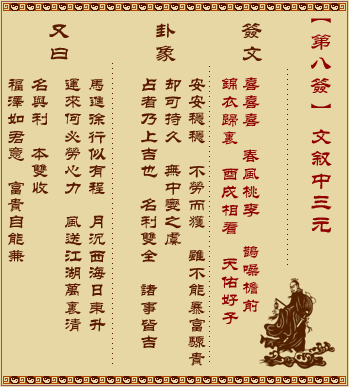 【第八簽】 文叙中三元
簽文
喜喜喜 春風桃李 鵲噪檐前
錦衣歸裏 酉戌相看 天佑好子
卦象
安安穩穩 不勞而獲 雖不能暴富驟貴
却可持久 無中變之虞
占者乃上吉也 名利雙全 諸事皆吉
又曰
馬進徐行似有程 月沉西海日東升
運來何必勞心力 風送江湖萬裏清
名與利 本雙收
福澤如君意 富貴自能兼